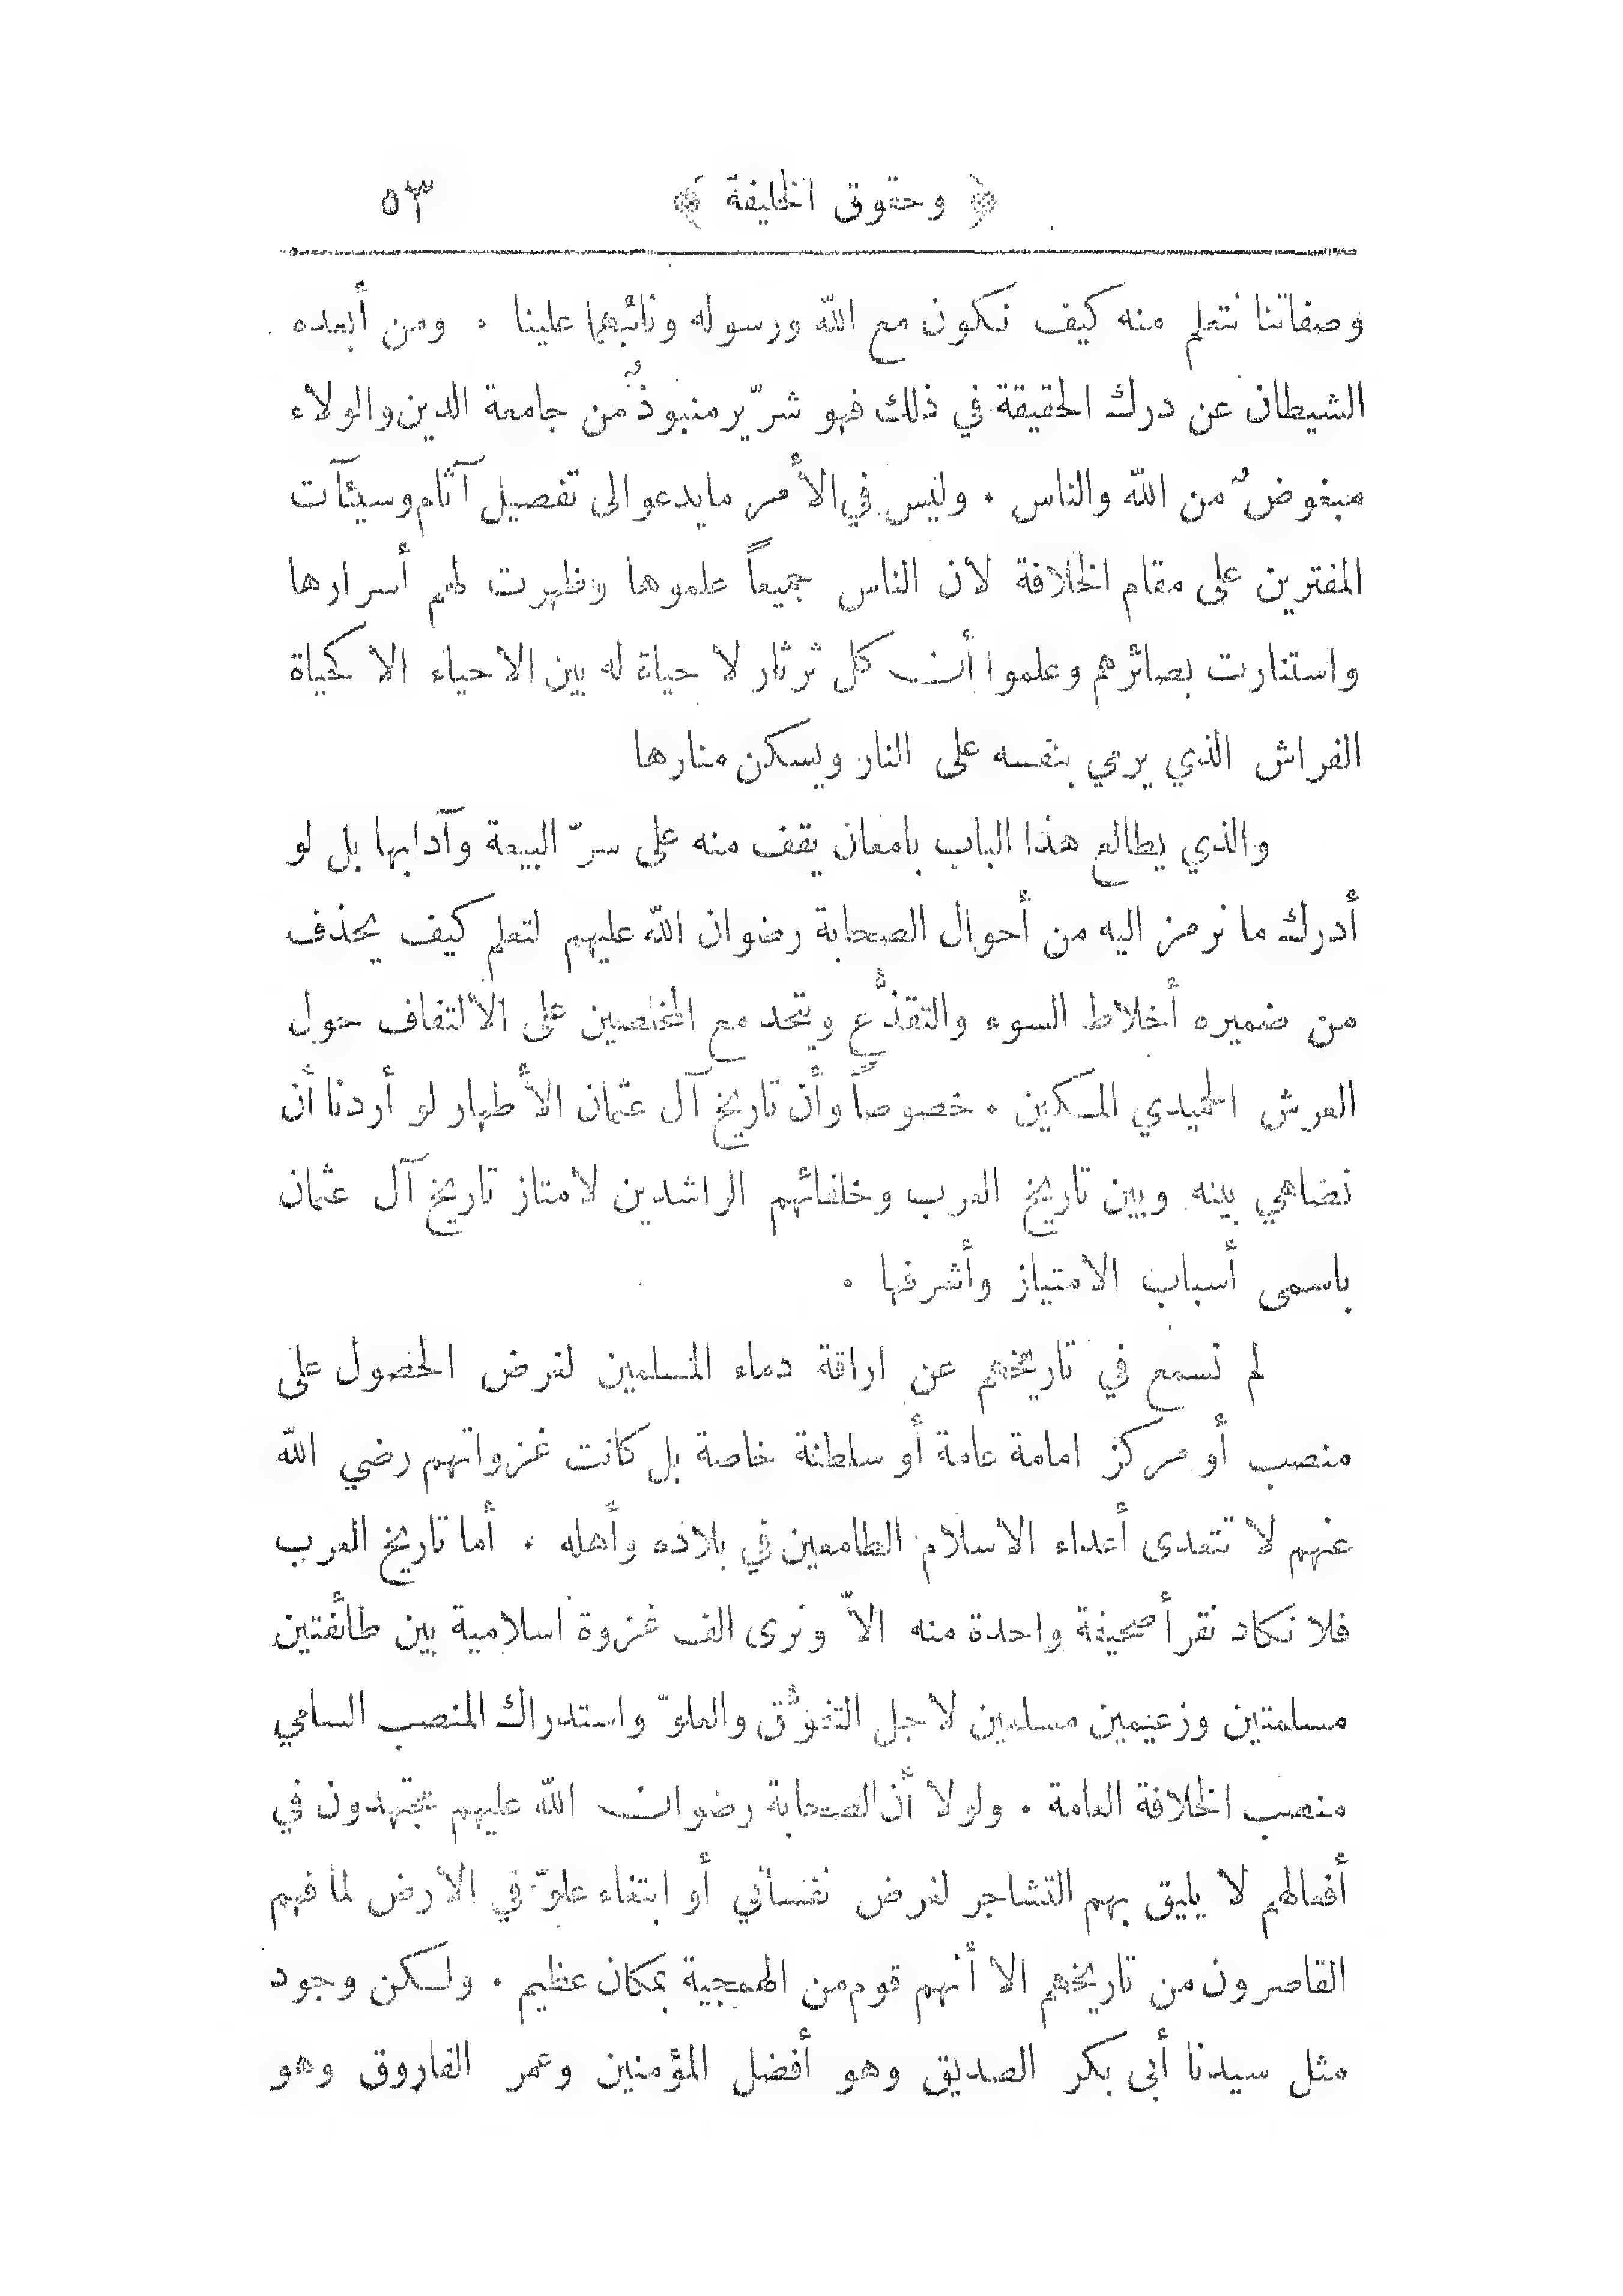 ﴿ وحقوق الخليفة ﴾ ٥٣
وصفاتنا نتعلم منه كيف نكون مع الله ورسوله ونائبهما علينا . ومن أبعده
الشيطان عن درك الحقيقة في ذلك فهو شرّير منبوذٌ من جامعة الدين والولاء
مبغوضٌ من الله والناس . وليس في الأمر مايدعو الى تفصيل آثام وسيئآت
المفترين على مقام الخلافة لان الناس جميعاً علموها وظهرت لهم أسرارها
واستنارت بصائرهم وعلموا أن كل ثرثار لا حياة له بين الاحياء الا كحياة
الفراش الذي يرمي بنفسه على النار ويسكن منارها
والذي يطالع هذا الباب بامعان يقف منه على سرّ البيعة وآدابها بل لو
أدرك ما نرمز اليه من أحوال الصحابة رضوان الله عليهم لتعلم كيف يحذف
من ضميره أخلاط السوء والتقذُّع ويتحد مع المخلصين على الالتفاف حول
العرش الحميدي المكين . خصوصاً وأن تاريخ آل عثمان الأطهار لو أردنا أن
نضاهي بينه وبين تاريخ العرب وخلفائهم الراشدين لامتاز تاريخ آل عثمان
باسمى أسباب الامتياز وأشرفها .
لم نسمع في تاريخهم عن اراقة دماء المسلمين لغرض الحصول على
منصب أو مركز امامة عامة أو سلطنة خاصة بل كانت غزواتهم رضي الله
عنهم لا تتعدى أعداء الاسلام الطامعين في بلاده وأهله . أما تاريخ العرب
فلا نكاد نقرأ صحيفة واحدة منه الاّ ونرى الف غزوة اسلامية بين طائفتين
مسلمتين وزعيمين مسلمين لاجل التفوُّق والعلوّ واستدراك المنصب السامي
منصب الخلافة العامة . ولولا أن الصحابة رضوان الله عليهم مجتهدون في
أفعالهم لا يليق بهم التشاجر لغرض نفساني أو ابتغاء علوّ في الارض لما فهم
القاصرون من تاريخهم الا أنهم قوم من الهمجية بمكان عظيم . ولكن وجود
مثل سيدنا أبى بكر الصديق وهو أفضل المؤمنين وعمر الفاروق وهو